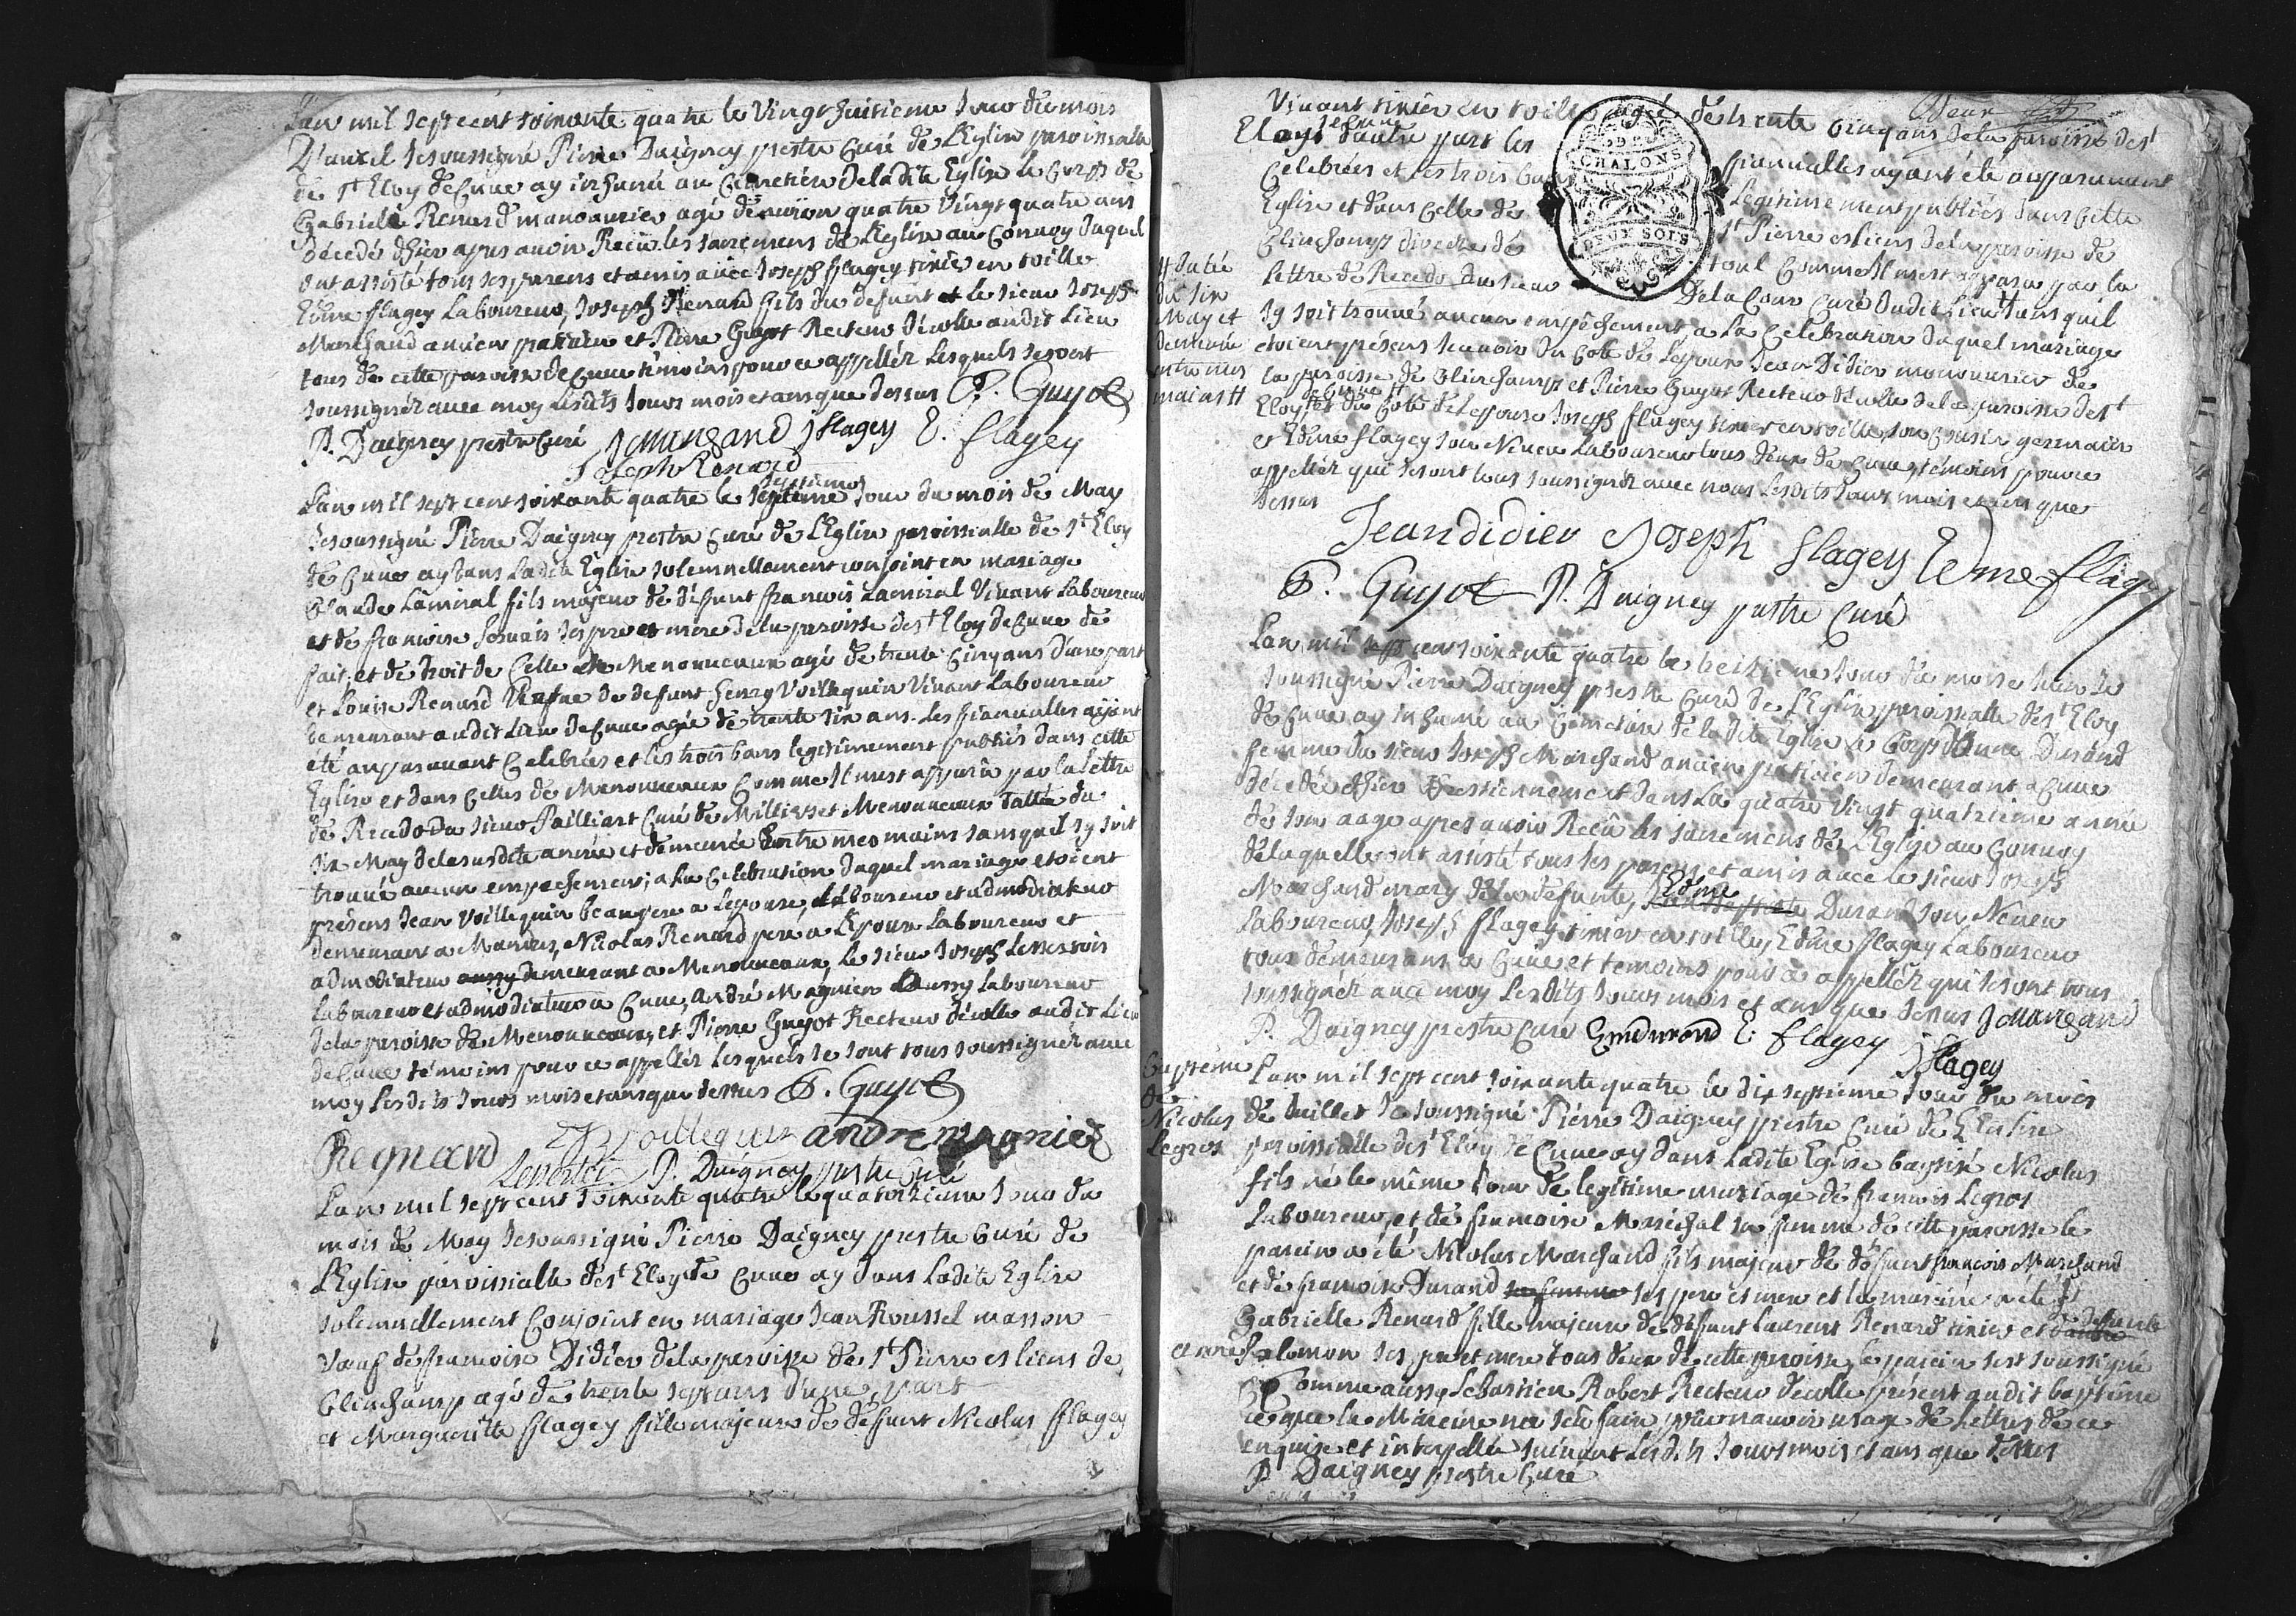 Lan mil sept cent soixante quatre le vingt huitieme Jour du mois
D'auril Je soussigné Pierre Daigney prestre Curé de L'Eglise paroissialle
de St Eloy de Cuve ay inhumé au Cimetiere de la dite Eglise le Corps de
Gabrielle Renard manouvrier agé denuiron quatre Vingt quatre ans
décedé d'hier apres auoir Reçû les sacremens de L'Eglise au Convoy duquel
ont assisté tous ses parens et amis auec Joseph flagey tixier en toille
Edme flagey Laboureur, Joseph Renard fils du defunt et le sieur Joseph
Marchand ancien praticien et Pierre Guyot Recteur d'école audit Lieu
tous de cette paroisse de Cuve témoins pour ce appellés Lesquels se sont
soussignés auec moy Lesdits Jours mois et an que dessus P. Guyot
P. Daigney prestre Curé J Marchand J flagey E. flagey
Joseph Renard
septieme
Lan mil sept cent soixante quatre le septieme Jour du mois de May
Je soussigné Pierre Daigney prestre Curé de L'Eglise paroissialle de St Eloy
de Cuve ay dans Ladite Eglise solemnellement conjoint en mariage
Claude Lamiral fils majeur de défunt francois Lamiral Vivant Laboureur
et de francoise ses pere et mere de la paroisse de St Eloy de Cuve de
fait et de droit de Celle de Menouueaux agé de trente Cinq ans d'une part
et Louise Renard Veufue de defunt henry Voillequin Vivant Laboureur
demeurant audit Lieu de Cuve agée de trente six ans. Les fiancailles aÿant
été auparauant Celebrées et les trois bans legitimement publiés dans cette
Eglise et dans Celles de Menouueaux Comme Il m'est apparû par la Lettre
de Recedo du sieur Pailliart Curé de Millieres et Menouueaux dattée du
six May de la susdite année et demeurée Entre mes mains sans quil sy soit
trouué aucun empechement; a la Celebration duquel mariage etoient
présens Jean Voillequin beaupere a Lepouse, Laboureur et admodiateur
demeurant a Mandres, Nicolas Renard pere a Lepouse Laboureur et
admodiateur aussy demeurant a Menouueaux, Le sieur Joseph
Laboureur et admodiateur a Cuve, André Magnier aussy Laboureur
de la paroisse de Menouueaux, et Pierre Guyot Recteur d'école audit Lieu
de Cuve témoins pour ce appellés lesquels se sont tous soussignés auec
moy Lesdits Jours mois et an que dessus P. Guyot
Regnard J Voillequin andre magnier
P. Daigney prestre Curé
Lan mil sept cent soixante quatre le quatorzieme Jour du
mois de May Je soussigné Pierre Daigney prestre Curé de
L'Eglise paroissialle de St Eloy de Cuve ay dans Ladite Eglise
solemnellement Conjoint en mariage Jean Roussel masson
Veuf de francoise Didier de la paroisse de St Pierre es liens de
Clinchamp agé de trente sept ans d'une part
et Marguerite flagey fille majeure de défunt Nicolas flagey
Deux
Vivant tixier en toille agée de trente Cinq ans de la paroisse de St
Eloy de Cuve d'autre part les fiancailles ayant été auparauant
Celebrées et les trois bans Legitimement publiés dans Cette
Eglise et dans Celle de St Pierre es liens de la paroisse de
Clinchamp diocese de toul Comme Il m'est apparu par la
Lettre de Recedo du sieur De la Cour Curé dudit Lieu # sans quil
# datée
du six
May et
demeurée
entre mes
mains #
CHALONS
DEUX SOLS
sy soit trouué aucun empêchement a La Celebration duquel mariage
etoient présens scauoir du Coté de Lepoux Jean Didier manouurier de
la paroisse de Clinchamp et Pierre Guyot Recteur d'école de la paroisse de St
Eloy de Cuve # et du Coté de Lepouse Joseph flagey tixier en toille son Cousin germain
et Edme flagey son Neueu Laboureur tous deux de Cuve, témoins pour ce
appellés qui se sont tous soussignés auec nous Lesdits Jours mois et an que
dessus
Jean didier Joseph flagey Edme flagey
P. Guyot P. Daigney prestre Curé
Lan mil sept cent soixante quatre le treizieme Jour du mois de Juin Je
soussigné Pierre Daigney prestre Curé de L'Eglise paroissialle de St Eloy
de Cuve ay inhumé au Cimetiere de la dite Eglise le Corps d'Anne Durand
femme du sieur Joseph Marchand ancien praticien demeurant a Cuve
décedée d'hier Chrestiennement dans La quatre vingt quatrieme année
de son aage apres auoir Reçû les sacremens de L'Eglise au Conuoy
de laquelle ont assisté tous ses parens et amis auec le sieur Joseph
Marchand mary de la defunte, Edme Durand son Neueu
Laboureur, Joseph flagey tixier en toille, Edme flagey Laboureur
tous demeurans a Cuve et temoins pour ce appellés qui se sont tous
soussignés auec moy Lesdits Jours mois et an que dessus J Marchand
P. Daigney prestre Curé E. flagey J flagey
Baptême
de
Nicolas
Legros
Lan mil sept cent soixante quatre le dix septieme Jour du mois
de Juillet Je soussigné Pierre Daigney prestre Curé de L'Eglise
paroissialle de St Eloy de Cuve ay dans Ladite Eglise baptisé Nicolas
fils né le même Jour de legitime mariage de francois Legros
Laboureur, et de francoise Maréchal sa femme de cette paroisse le
parein a été Nicolas Marchand fils majeur de défunt francois Marchand
et de francoise Durand sa femme ses pere et mere et la mareine a été
Gabrielle Renard fille majeure de défunt Laurent Renard tixier et defunte
anne Salomon ses pere et mere tous deux de cette paroisse, le parein s'est soussigné
Comme aussy Sebastien Robert Recteur d'école présent audit baptême
ce que la Mareine na sçû faire pour nauoir usage de Lettres de ce
enquise et interpellée suiuant Lesdits Jours mois et an que dessus
P. Daigney prestre Curé